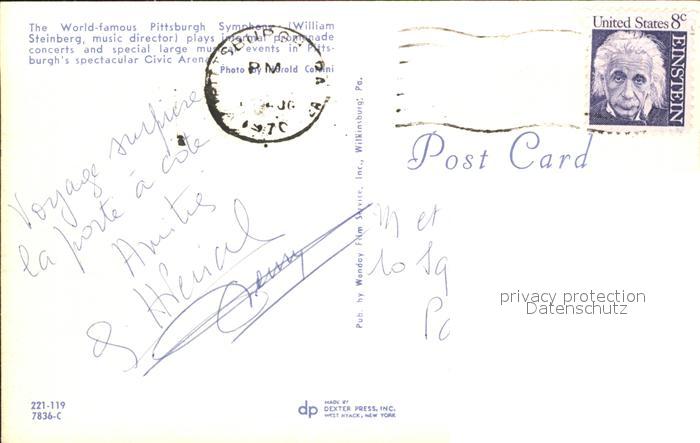 The World-famous Pittsburgh Symphony (William
Steinberg, music director) plays informal promenade
concerts and special large musical events in Pitts-
burgh's spectacular Civic Arena.
Photo by Harold Corsini
PM
1970
United States 8c
EINSTEIN
Post Card
Voyage surprise
la porte à côté
Amitiés
Pub. by Wonday Film Service, Inc., Wilkinsburg, Pa.
M et
10 Sq
privacy protection
Datenschutz
221-119
7836-C
dp MADE BY
DEXTER PRESS, INC.
WEST NYACK, NEW YORK